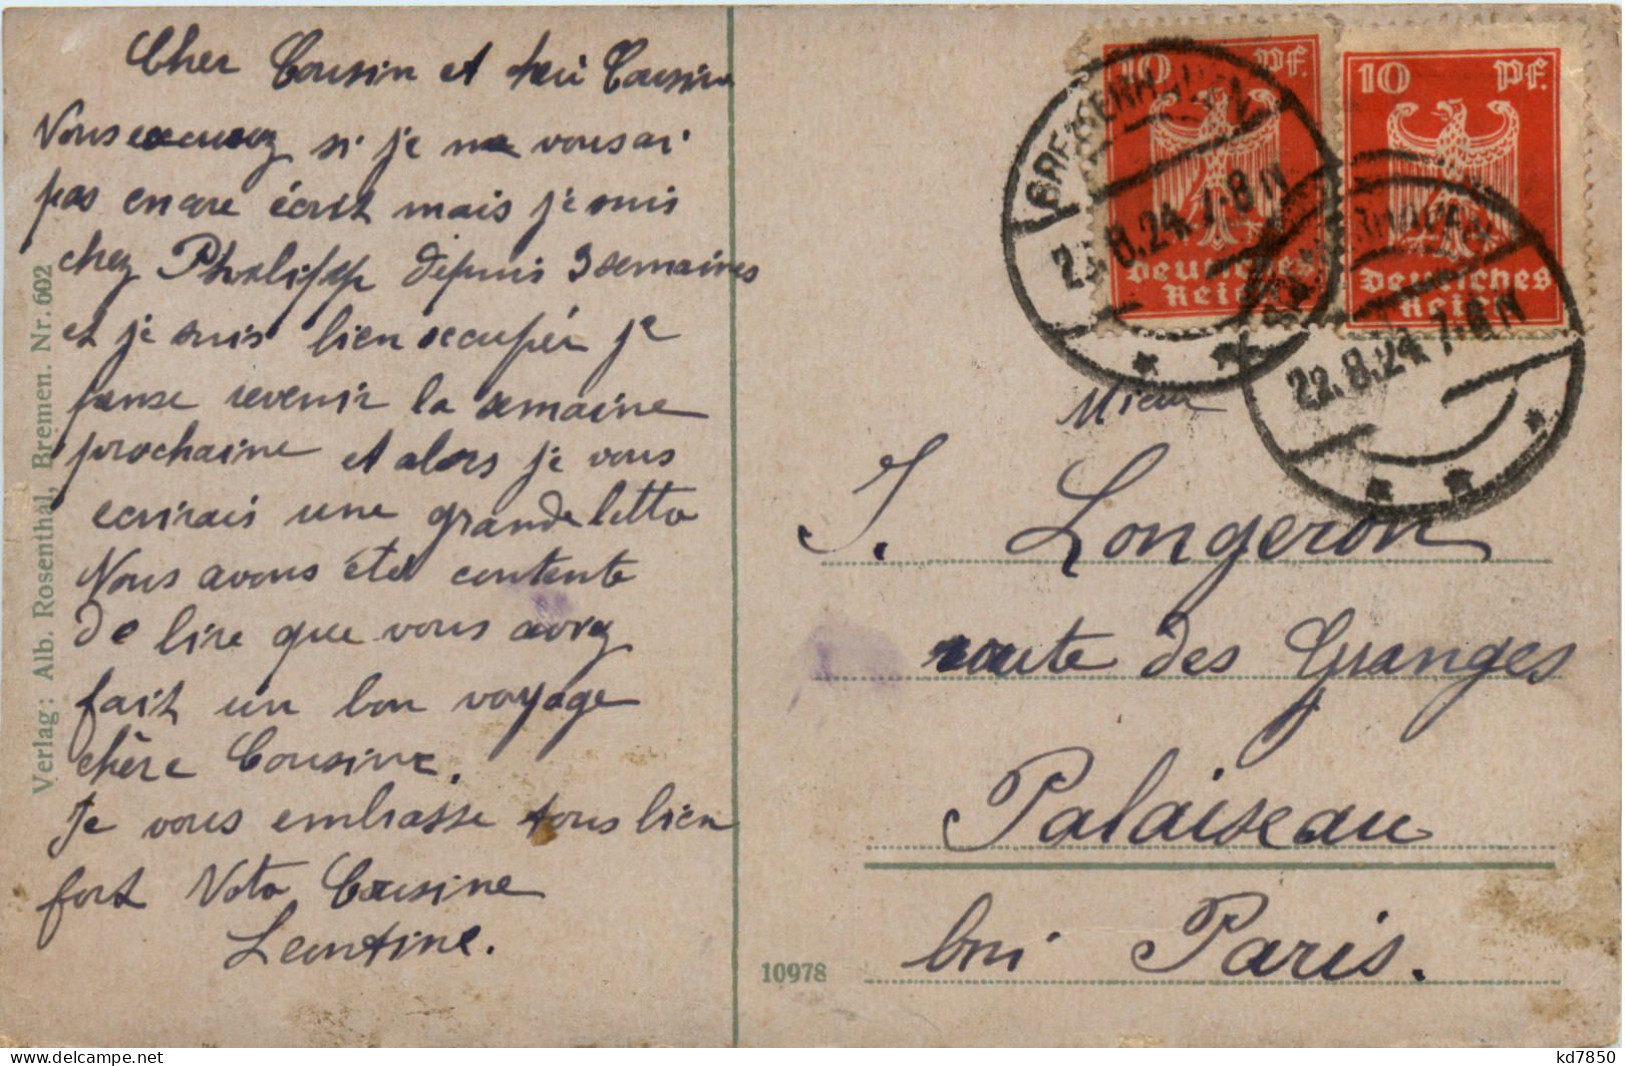 Cher Cousin et Cousine
Vous excusez si je ne vous ai
pas encore écrit mais je suis
chez Philipp depuis 3 semaines
et je suis bien occupér je
pense revenir la semaine
prochaine et alors je vous
ecrirais une grande lettre
Nous avons étés contente
de lire que vous avez
fait un bon voyage
chère Cousine.
Je vous embrasse tous bien
fort Votre Cousine
Leontine.
Verlag: Alb. Rosenthal, Bremen. Nr. 602
10978
10 Pf.
Deutsches
Reich
10 Pf.
Deutsches
Reich
BREMERHAVEN
22.8.24. 7-8 N
22.8.24. 7-8 N
J. Longeron
route des Granges
Palaiseau
bei Paris.
kd7850